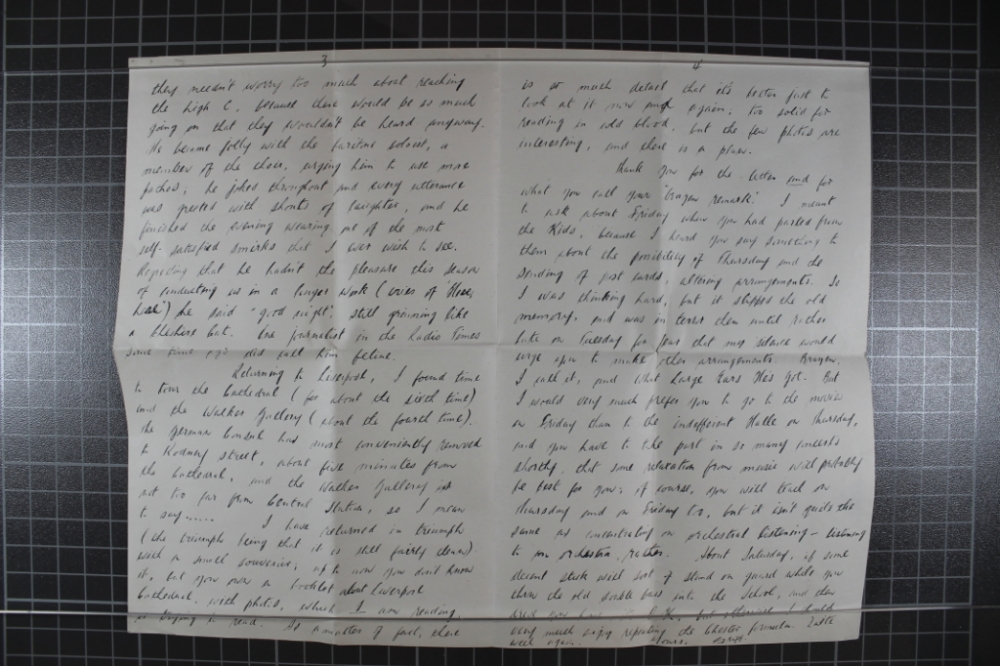 3
they needn't worry too much about reaching
the high C, because there would be so much
going on that they wouldn't be heard anyway.
He became jolly with the baritone soloist, a
member of the choir, urging him to use more
pathos; he joked throughout and every utterance
was greeted with shouts of laughter, and he
finished the evening wearing one of the most
self-satisfied smirks that I ever wish to see.
Regretting that he hadn't the pleasure this season
of conducting us in a larger work (cries of "Hear,
hear") he said "good night", still grinning like
a Cheshire Cat. One journalist in the Radio Times
some time ago did call him feline.
Returning to Liverpool, I found time
to tour the Cathedral (for about the sixth time)
and the Walker Gallery (about the fourth time).
The German Consul has most conveniently removed
to Rodney Street, about five minutes from
the Cathedral, and the Walker Gallery is
not too far from Central Station, so I mean
to say...... I have returned in triumph
(the triumph being that it is still fairly clean)
with a small souvenir; up to now you don't know
it, but you own a booklet about Liverpool
Cathedral, with photos, which I am reading,
or trying to read. As a matter of fact, there
4
is so much detail that it's better just to
look at it now and again; too solid for
reading in cold blood, but the few photos are
interesting, and there is a plan.
Thank you for the letter and for
what you call your "brazen remark". I meant
to ask about Friday when you had parted from
the Kids, because I heard you say something to
them about the possibility of Thursday and the
sending of post cards, altering arrangements. So
I was thinking hard, but it slipped the old
memory, and was in terror then until rather
late on Tuesday for fear that my silence would
urge you to make other arrangements. Brazen,
I call it, and what large Ears He's got. But
I would very much prefer you to go to the movies
on Friday than to the indifferent Halle on Thursday,
and you have to take part in so many concerts
shortly, that some relaxation from music will probably
be best for you; of course, you will teach on
Thursday and on Friday too, but it isn't quite the
same as concentrating on orchestral listening – listening
to an orchestra, rather. About Saturday, if some
decent stick will sort of stand on guard while you
throw the old double bass into the School, and then
but otherwise I should
very much enjoy repeating the Chester formula. Write
week again. Yours,